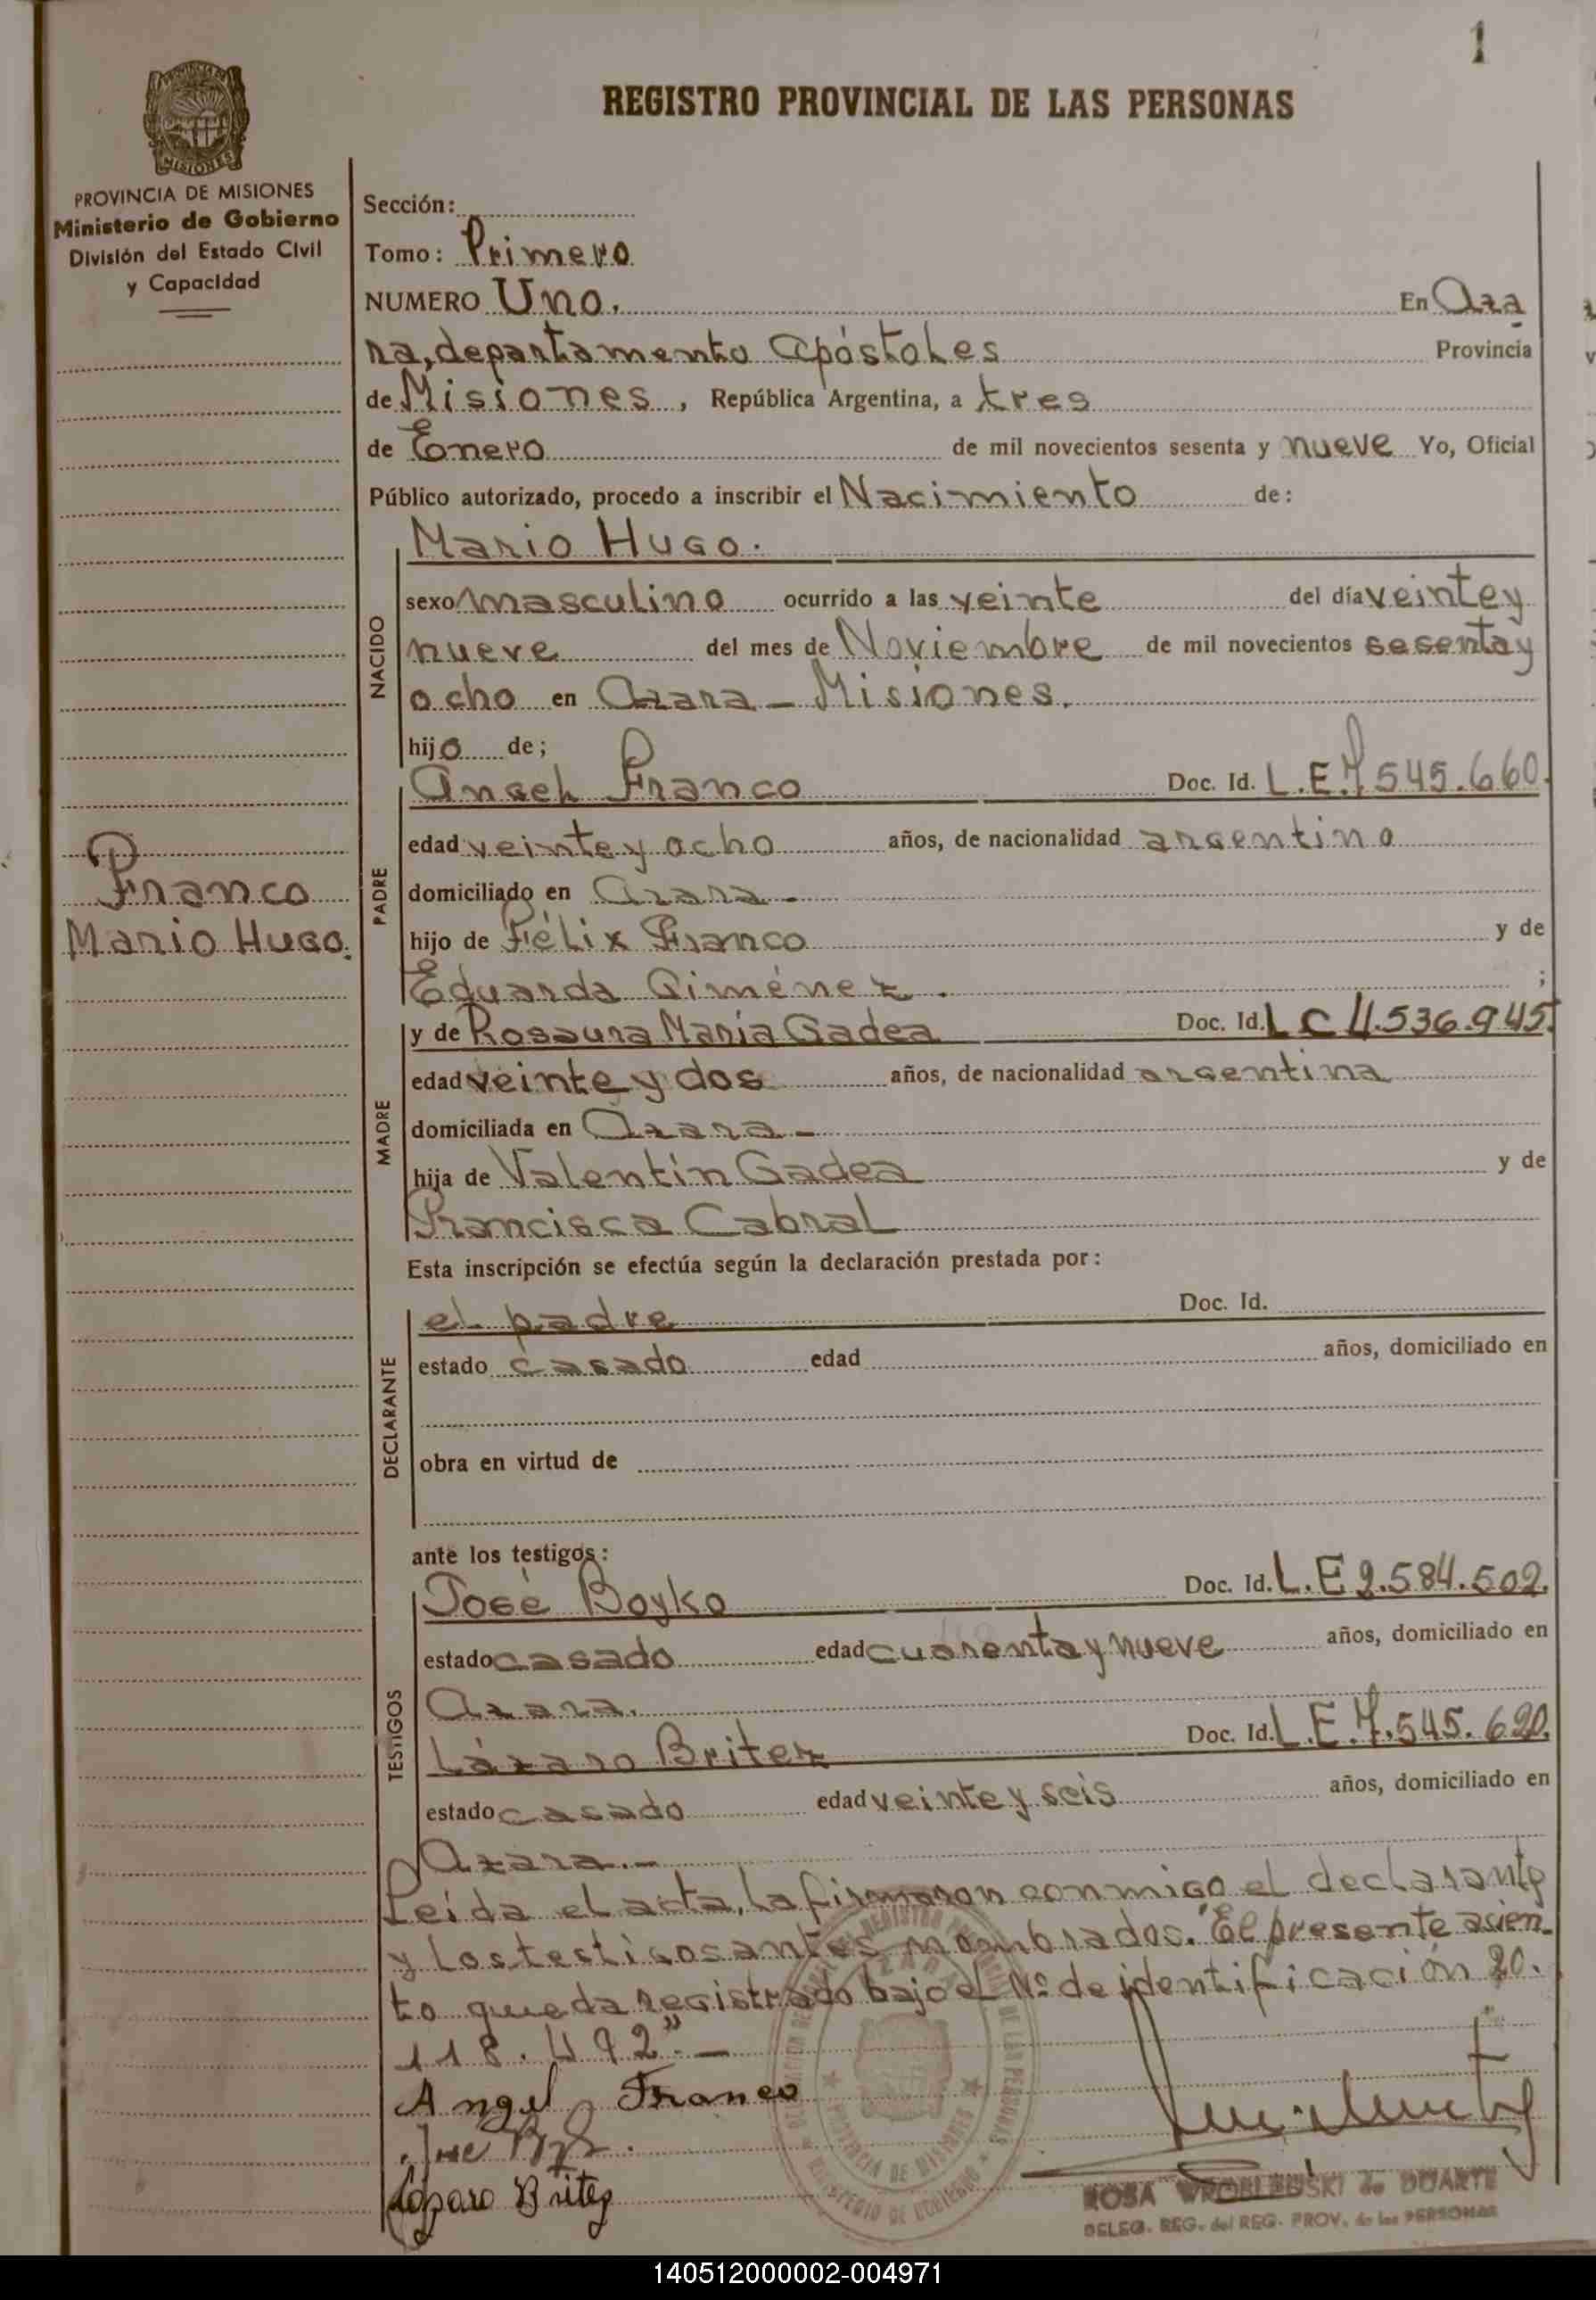 1
REGISTRO PROVINCIAL DE LAS PERSONAS
PROVINCIA DE MISIONES
MISIONES
PROVINCIA DE MISIONES
Ministerio de Gobierno
División del Estado Civil
y Capacidad
Franco
Mario Hugo.
Sección:
Tomo: Primero
NUMERO Uno. En Aza
ra, departamento Apóstoles Provincia
de Misiones, República Argentina, a tres
de Enero de mil novecientos sesenta y nueve Yo, Oficial
Público autorizado, procedo a inscribir el Nacimiento de:
NACIDO
Mario Hugo.
sexo masculino ocurrido a las veinte del día veinte y
nueve del mes de Noviembre de mil novecientos sesenta y
ocho en Azara - Misiones.
hijo de;
PADRE
Angel Franco Doc. Id. L.E. 7.545.660.
edad veinte y ocho años, de nacionalidad argentino
domiciliado en Azara.-
hijo de Félix Franco y de
Eduarda Giménez. ;
MADRE
y de Rosaura María Gadea Doc. Id. L C 4.536.945.
edad veinte y dos años, de nacionalidad argentina
domiciliada en Azara.-
hija de Valentín Gadea y de
Francisca Cabral
Esta inscripción se efectúa según la declaración prestada por:
DECLARANTE
el padre Doc. Id.
estado casado edad años, domiciliado en
obra en virtud de
ante los testigos:
TESTIGOS
José Boyko Doc. Id. L.E 2.584.502.
estado casado edad cuarenta y nueve años, domiciliado en
Azara.
Lázaro Britez Doc. Id. L.E. 7.545.620.
estado casado edad veinte y seis años, domiciliado en
Azara.-
Leída el acta, la firmaron conmigo el declarante
y los testigos antes nombrados. "El presente asien-
to queda registrado bajo el Nº de identificación 20.
118.492".-
Angel Franco
Jose
Lázaro Britez
PROVINCIA DE MISIONES
MINISTERIO DE GOBIERNO
ROSA WROBLEWSKI de DUARTE
DELEG. REG. del REG. PROV. de las PERSONAS
140512000002-004971